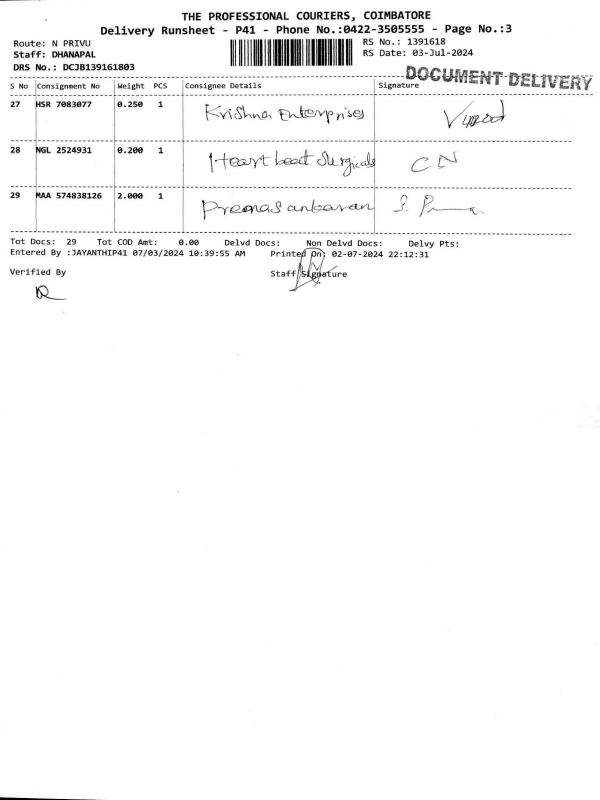 THE PROFESSIONAL COURIERS, COIMBATORE
Delivery Runsheet - P41 - Phone No.:0422-3505555 - Page No.:3
Route: N PRIVU
RS No.: 1391618
Staff: DHANAPAL
RS Date: 03-Jul-2024
DRS No.: DCJB139161803
DOCUMENT DELIVERY
S No Consignment No Weight PCS Consignee Details Signature
27 HSR 7083077 0.250 1 Krishna Enterprises
28 NGL 2524931 0.200 1 Heart beat Surgicals CN
29 MAA 574838126 2.000 1 Premasankaran
Tot Docs: 29 Tot COD Amt: 0.00 Delvd Docs: Non Delvd Docs: Delvy Pts:
Entered By :JAYANTHIP41 07/03/2024 10:39:55 AM Printed On: 02-07-2024 22:12:31
Verified By Staff Signature